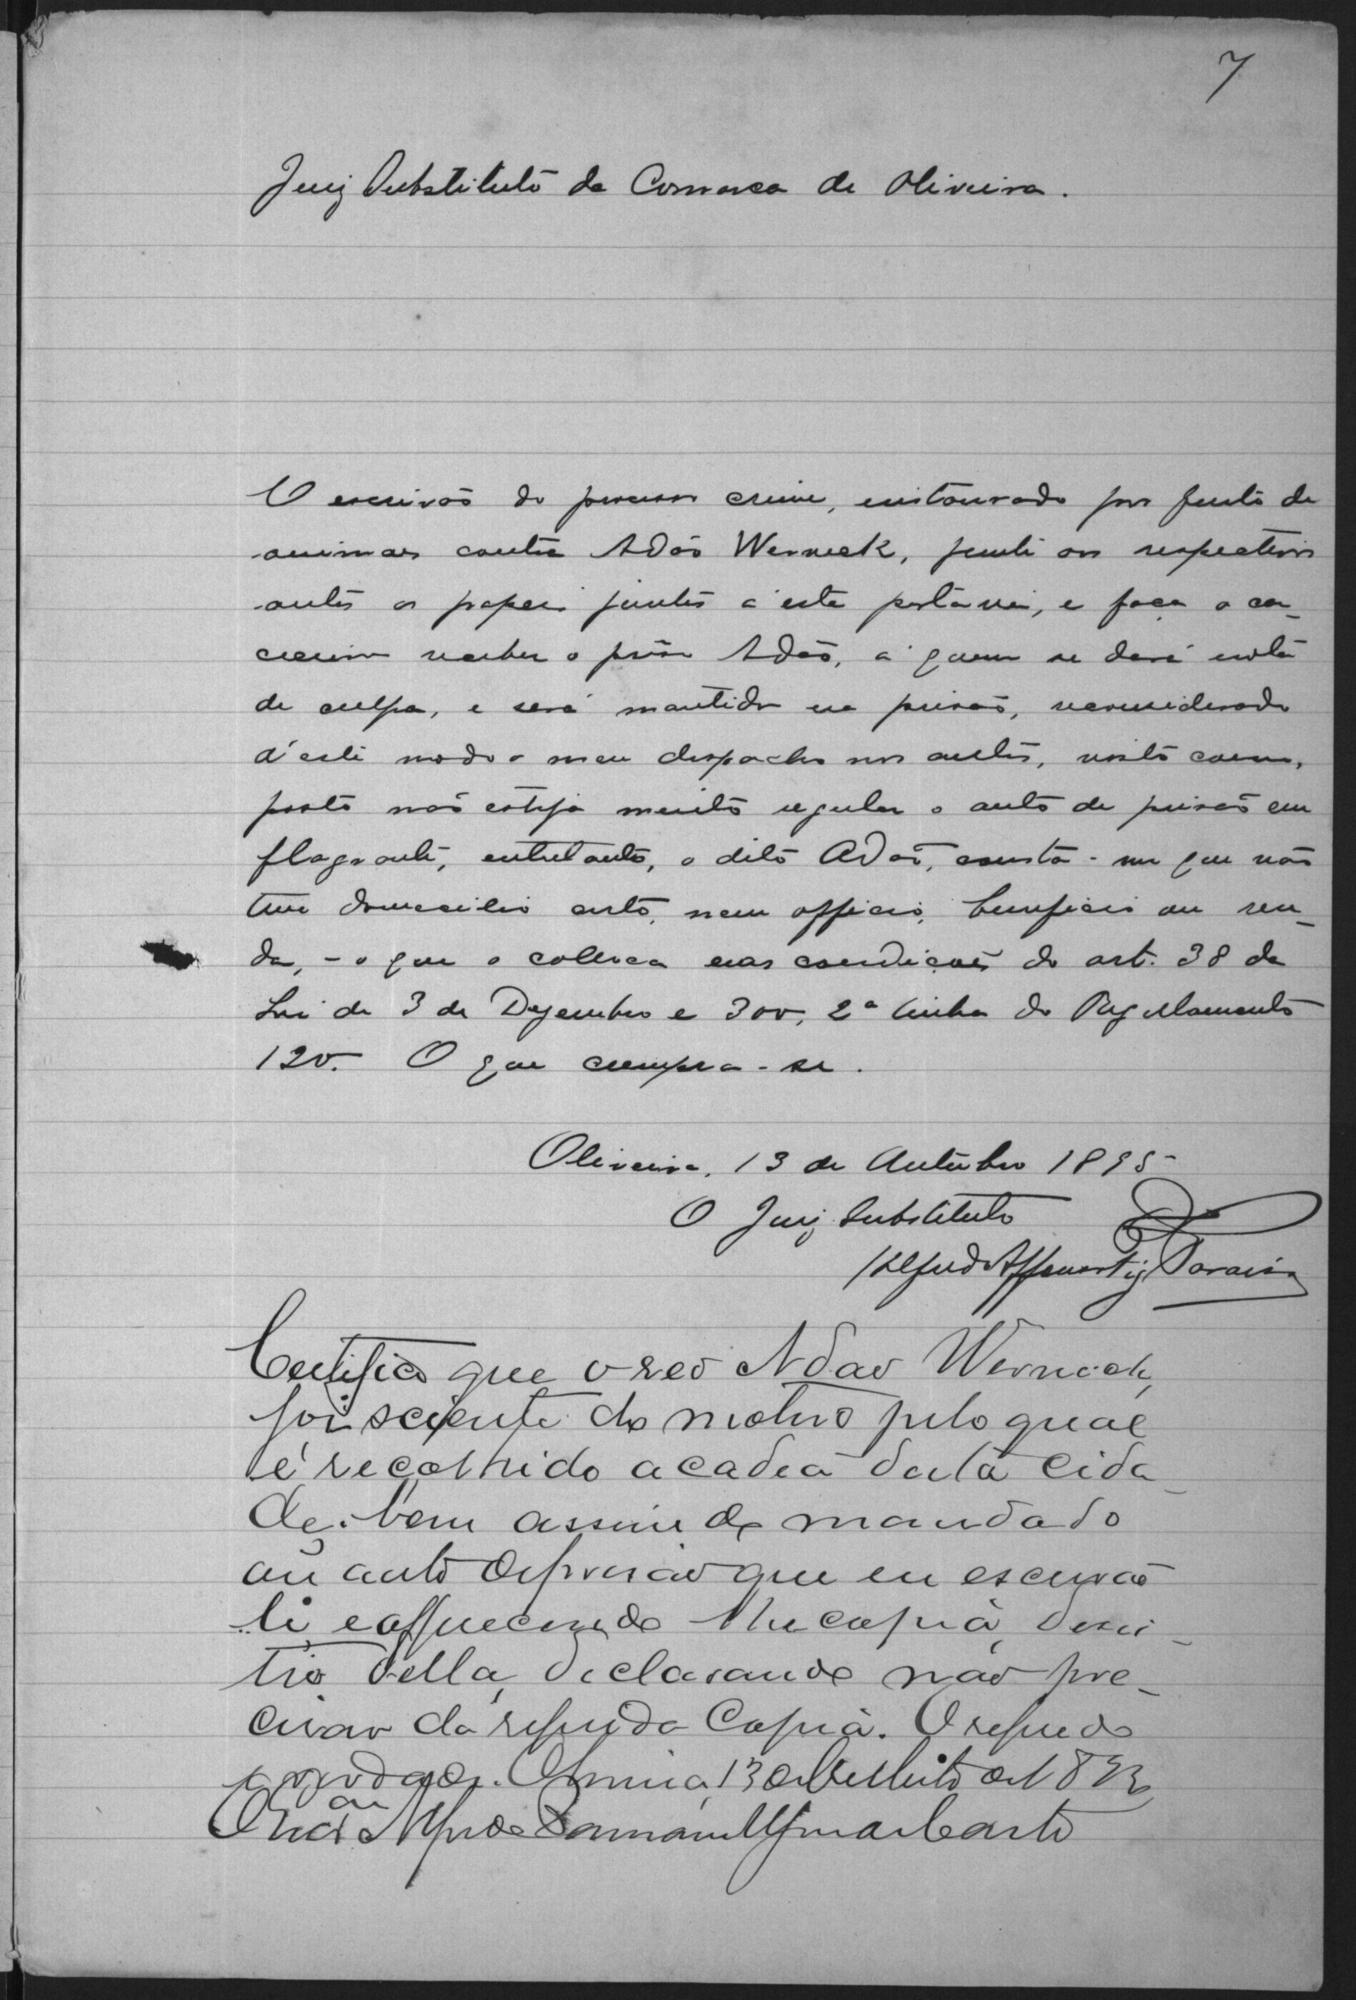 7
Juiz Substituto da Comarca de Oliveira.
O escrivão do processo crime, instaurado por furto de
animaes contra Adão Werneck, junte aos respectivos
autos os papeis juntos á esta portaria, e faça o car_
cereiro receber o prêso Adão, á quem se dará nota
de culpa, e será mantido na prisão, reconsiderado
d'este modo o meu despacho nos autos, visto como,
posto não esteja muito regular o auto de prisão em
flagrante, entretanto, o dito Adão, consta-me que não
tem domicilio certo, nem officio, beneficio ou ren_
da, - o que o colloca nas condições do art. 38 da
Lei de 3 de Dezembro e 300, 2ª linha do Regulamento
120. O que cumpra-se.
Oliveira, 13 de Outubro 1895
O Juiz Substituto
Alfredo
Certifico que o reo Adão Werneck,
foi sciente do motivo pelo qual
é recolhido a cadeia desta cida_
de, bem assim do mandado
ou auto de prisão que eu escrivão
li e offerecendo lhe copia,
della, declarando não pre_
cisar da referida Copia. O referido
13 de de 189